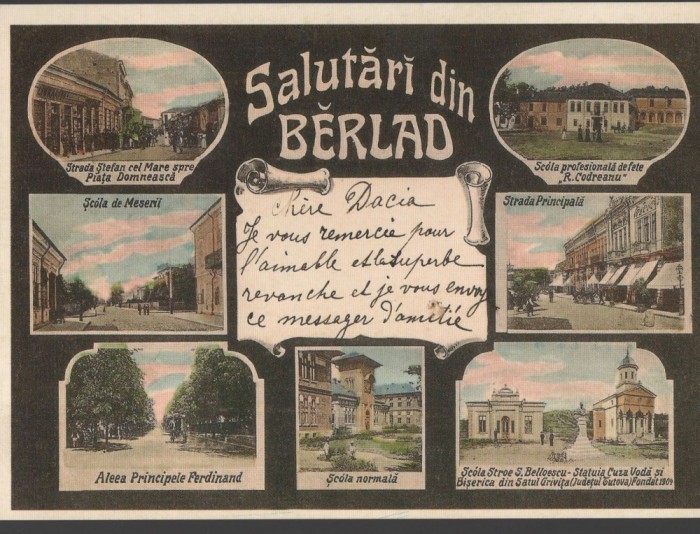 Salutărĭ din
BĔRLAD
Strada Ștefan cel Mare spre
Piața Domnească
Scóla profesională de fete
„R. Codreanu"
Șcóla de Meseriĭ
Strada Principală
Chère Dacia
Je vous remercie pour
l'aimable et la superbe
revanche et je vous envoy
ce messager d'amitié
Aleea Principele Ferdinand
Șcóla normală
Scóla Stroe S. Belloescu - Statuia Cuza Vodă si
Biserica din Satul Grivița (Județul Tutova) Fondat 1904